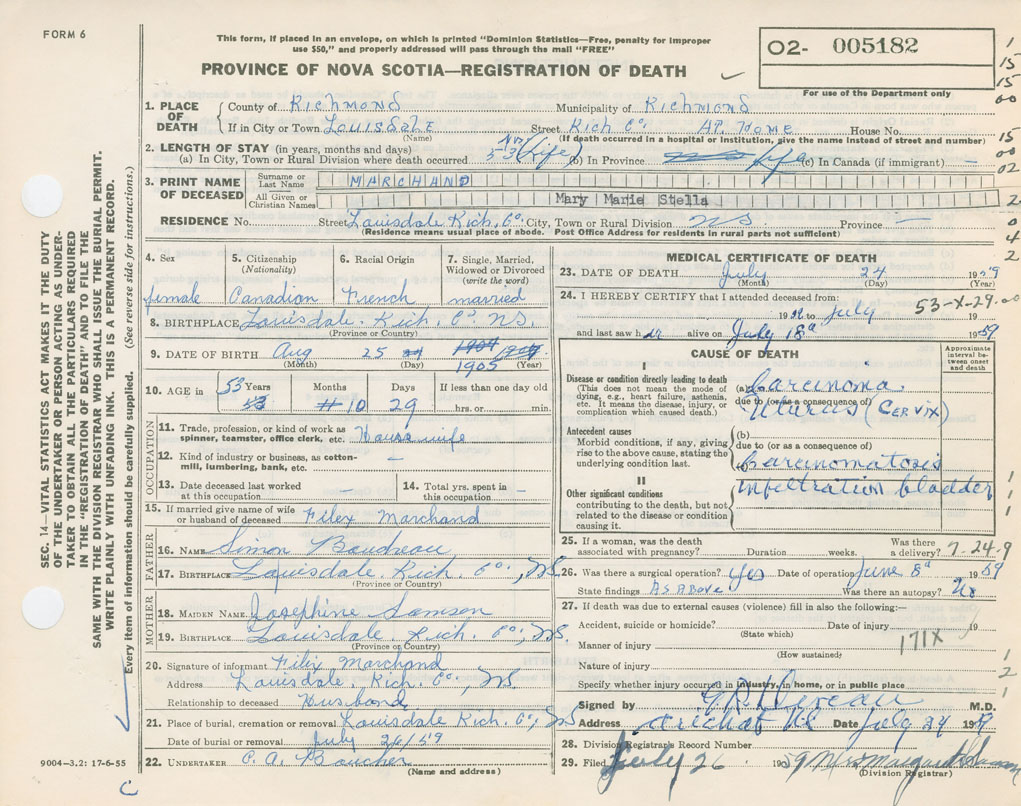 FORM 6
This form, if placed in an envelope, on which is printed "Dominion Statistics—Free, penalty for improper
use $50," and properly addressed will pass through the mail "FREE"
PROVINCE OF NOVA SCOTIA—REGISTRATION OF DEATH
02- 005182
For use of the Department only
SEC. 14—VITAL STATISTICS ACT MAKES IT THE DUTY
OF THE UNDERTAKER OR PERSON ACTING AS UNDER-
TAKER TO OBTAIN ALL THE PARTICULARS REQUIRED
IN THE "REGISTRATION OF DEATH" AND TO FILE THE
SAME WITH THE DIVISION REGISTRAR WHO SHALL ISSUE THE BURIAL PERMIT.
WRITE PLAINLY WITH UNFADING INK. THIS IS A PERMANENT RECORD.
Every item of information should be carefully supplied. (See reverse side for instructions.)
1. PLACE OF DEATH County of Richmond Municipality of Richmond
If in City or Town Louisdale Street Rich Co. At Home House No.
(Name) (If death occurred in a hospital or institution, give the name instead of street and number)
2. LENGTH OF STAY (in years, months and days)
(a) In City, Town or Rural Division where death occurred 53 (Life) (b) In Province Life (c) In Canada (if immigrant) —
3. PRINT NAME OF DECEASED Surname or Last Name MARCHAND
All Given or Christian Names Mary Marie Stella
RESIDENCE No. Street Louisdale Rich. Co. City, Town or Rural Division NS Province —
(Residence means usual place of abode. Post Office Address for residents in rural parts not sufficient)
4. Sex female
5. Citizenship (Nationality) Canadian
6. Racial Origin French
7. Single, Married, Widowed or Divorced (write the word) married
8. BIRTHPLACE Louisdale. Rich. Co. NS.
(Province or Country)
9. DATE OF BIRTH Aug 25 1905
(Month) (Day) (Year)
10. AGE in 53 Years Months 10 Days 29 If less than one day old hrs. or min.
OCCUPATION
11. Trade, profession, or kind of work as spinner, teamster, office clerk, etc. Housewife
12. Kind of industry or business, as cotton-mill, lumbering, bank, etc. —
13. Date deceased last worked at this occupation — 14. Total yrs. spent in this occupation —
15. If married give name of wife or husband of deceased Filex Marchand
FATHER
16. NAME Simon Boudreau
17. BIRTHPLACE Louisdale. Rich. Co., NS.
(Province or Country)
MOTHER
18. MAIDEN NAME Josephine Samson
19. BIRTHPLACE Louisdale. Rich. Co., NS.
(Province or Country)
20. Signature of informant Filix Marchand
Address Louisdale. Rich. Co., NS
Relationship to deceased Husband
21. Place of burial, cremation or removal Louisdale Rich. Co., NS
Date of burial or removal July 26/59
22. UNDERTAKER C. A. Boucher
(Name and address)
9004-3.2: 17-6-55
MEDICAL CERTIFICATE OF DEATH
23. DATE OF DEATH July 24 1959
(Month) (Day) (Year)
24. I HEREBY CERTIFY that I attended deceased from:
53-X-29.00
19 to July 19
and last saw her alive on July 18 1959
CAUSE OF DEATH
Approximate interval between onset and death
I
Disease or condition directly leading to death
(This does not mean the mode of dying, e.g., heart failure, asthenia, etc. It means the disease, injury, or complication which caused death.)
(a) Carcinoma
due to (or as a consequence of)
Uterus (Cervix)
Antecedent causes
Morbid conditions, if any, giving rise to the above cause, stating the underlying condition last.
(b)
due to (or as a consequence of)
Carcinomatosis
II
Other significant conditions contributing to the death, but not related to the disease or condition causing it.
infiltration bladder
25. If a woman, was the death associated with pregnancy? Duration weeks. Was there a delivery? 7-24-9
26. Was there a surgical operation? Yes Date of operation June 8 1959
State findings As above Was there an autopsy? No
27. If death was due to external causes (violence) fill in also the following:—
Accident, suicide or homicide? Date of injury 19
(State which)
Manner of injury 171X
(How sustained)
Nature of injury
Specify whether injury occurred in industry, in home, or in public place
Signed by M.D.
Address Arichat NS Date July 24 1959
28. Division Registrar's Record Number
29. Filed July 26 1959 Mrs Margaret
(Division Registrar)